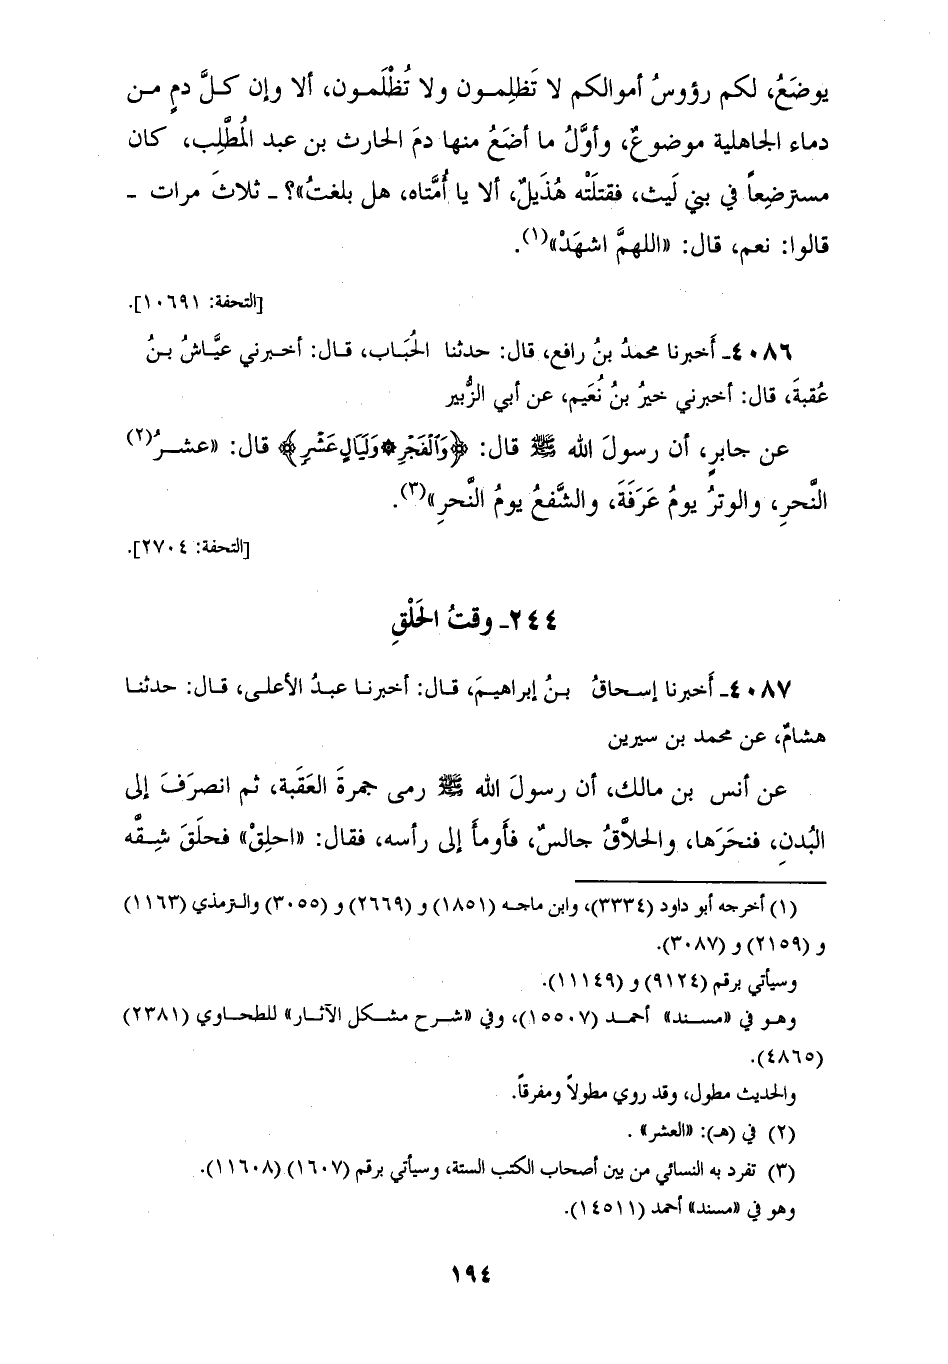 يوضَعُ، لكم رؤوسُ أموالكم لا تَظلِمـون ولا تُظْلَمـون، ألا وإن كـلَّ دمٍ مـن
دماء الجاهلية موضوعٌ، وأوَّلُ ما أضَعُ منها دمَ الحارث بن عبد المُطَّلِب، كان
مسترضِعاً في بني لَيث، فقتلَتْه هُذَيلٌ، ألا يا أُمَّتاه، هل بلغتُ»؟ ـ ثلاثَ مرات ـ
قالوا: نعم، قال: «اللهمَّ اشهَدْ»(١).
[التحفة: ١٠٦٩١].
٤٠٨٦ـ أَخبرنا محمدُ بنُ رافع، قال: حدثنا الحُبَاب، قـال: أخـبرني عيَّـاشُ بـنُ
عُقبةَ، قال: أخبرني خيرُ بنُ نُعَيم، عن أبي الزُّبير
عن جابرٍ، أن رسولَ الله ﷺ قال: ﴿وَٱلْفَجْرِ * وَلَيَالٍ عَشْرٍ﴾ قال: «عشـرُ(٢)
النَّحرِ، والوترُ يومُ عَرَفَةَ، والشَّفعُ يومُ النَّحرِ»(٣).
[التحفة: ٢٧٠٤].
٢٤٤ـ وقتُ الحَلْقِ
٤٠٨٧ـ أَخبرنا إسـحاقُ بـنُ إبراهيـمَ، قـال: أخبرنـا عبـدُ الأعلـى، قـال: حدثنـا
هشامٌ، عن محمد بن سيرين
عن أنس بن مالك، أن رسولَ الله ﷺ رمى جمرةَ العَقَبة، ثم انصرَفَ إلى
البُدنِ، فنحَرَها، والحلاَّقُ جالسٌ، فأَومأَ إلى رأسه، فقال: «احلِقْ» فحلَقَ شِـقَّه
(١) أخرجه أبو داود (٣٣٣٤)، وابن ماجـه (١٨٥١) و (٢٦٦٩) و (٣٠٥٥) والـترمذي (١١٦٣)
و (٢١٥٩) و (٣٠٨٧).
وسيأتي برقم (٩١٢٤) و (١١١٤٩).
وهـو في «مسـند» أحمـد (١٥٥٠٧)، وفي «شـرح مشـكل الآثـار» للطحـاوي (٢٣٨١)
(٤٨٦٥).
والحديث مطول، وقد روي مطولاً ومفرقاً.
(٢) في (هـ): «العشر» .
(٣) تفرد به النسائي من بين أصحاب الكتب الستة، وسيأتي برقم (١٦٠٧) (١١٦٠٨).
وهو في «مسند» أحمد (١٤٥١١).
١٩٤